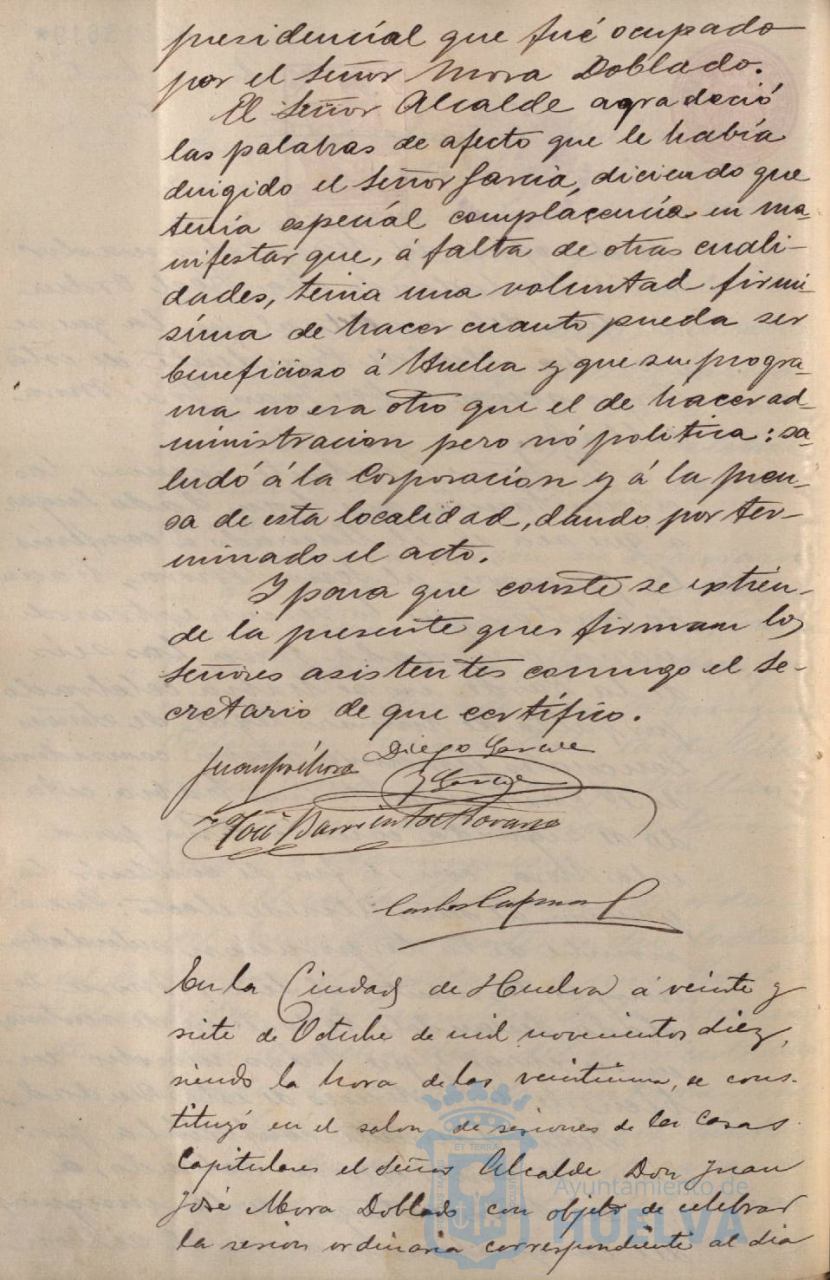 presidencial que fué ocupado
por el Señor Mora Doblado.
El Señor Alcalde agradeció
las palabras de afecto que le había
dirigido el Señor García, diciendo que
tenía especial complacencia en ma-
nifestar que, á falta de otras cuali-
dades, tenia una voluntad firmi-
síma de hacer cuanto pueda ser
beneficioso á Huelva y que su progra-
ma no era otro que el de hacer ad-
ministracion pero nó politica: sa-
ludó á la Corporación y á la pren-
sa de esta localidad, dando por ter-
minado el acto.
Y para que conste se extien-
de la presente que firman los
Señores asistentes conmigo el Se-
cretario de que certífico.
Juan José Mora Diego Garcia
y Garcia
José Barrientos
Carlos
En la Ciudad de Huelva á veinte y
siete de Octubre de mil novecientos diez,
siendo la hora de las veintiuna, se cons-
tituyó en el salon de sesiones de las Casas
Capitulares el Señor Alcalde Don Juan
José Mora Doblado con objeto de celebrar
la sesion ordinaria correspondiente al dia
Ayuntamiento de
HUELVA